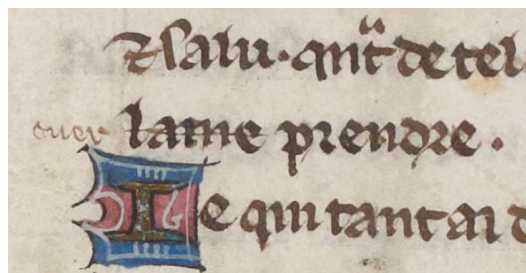 ⁊ salu · qͣnt de tel
ouer lame prendre ·
Ie qui tant ai d